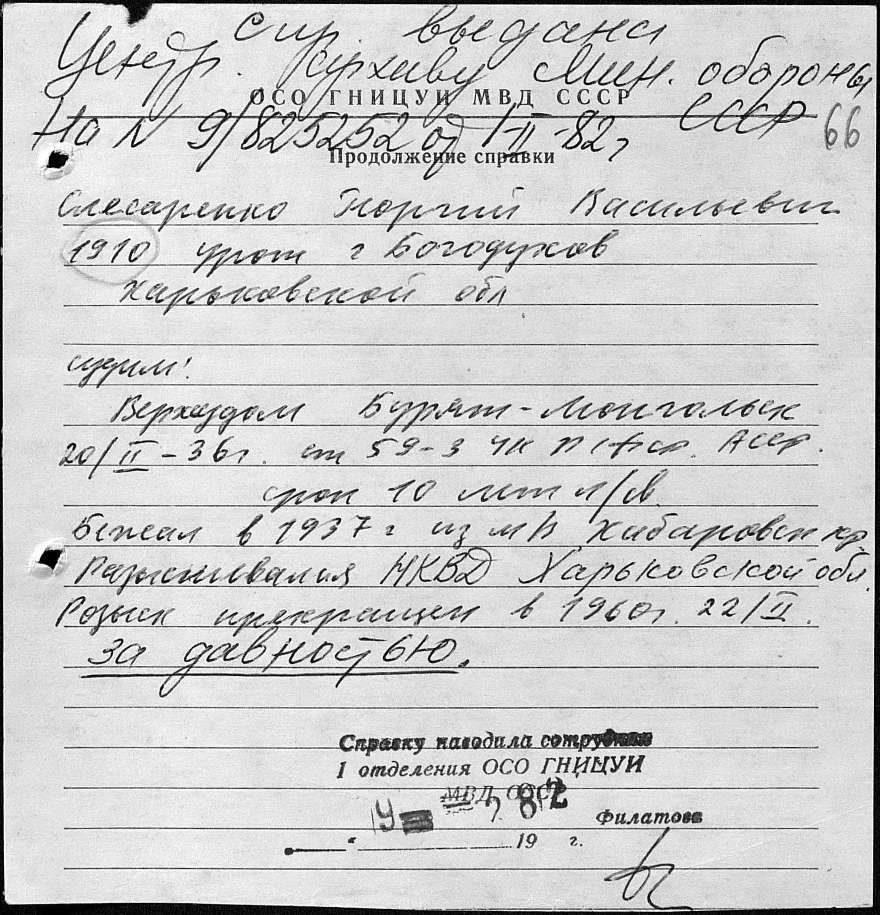 Спр. выдана
Центр. Архиву Мин. обороны
ОСО ГНИЦУИ МВД СССР
СССР
На № 9/825252 от 1-II-82 г
66
Продолжение справки
Слесаренко Георгий Васильевич
1910 урож г Богодухов
Харьковской обл
судим:
Верхсудом Бурят-Монгольск
20/II-36г. ст 59-3 УК РСФСР. АССР.
срок 10 лет л/св
Бежал в 1937 г из м/з Хабаровск кр
Разыскивался НКВД Харьковской обл.
Розыск прекращен в 1960г. 22/II.
за давностью.
Справку наводила сотрудник
1 отделения ОСО ГНИЦУИ
МВД СССР
82
Филатова
19 г.